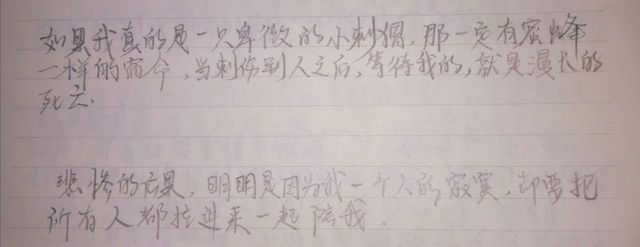 如果我真的是一只卑微的小刺猬,那一定有蜜蜂
一样的宿命,当刺伤别人之后,等待我的,就是漫长的
死亡.
悲惨的后果,明明是因为我一个人的寂寞,却要把
所有人都拉进来一起陪我.